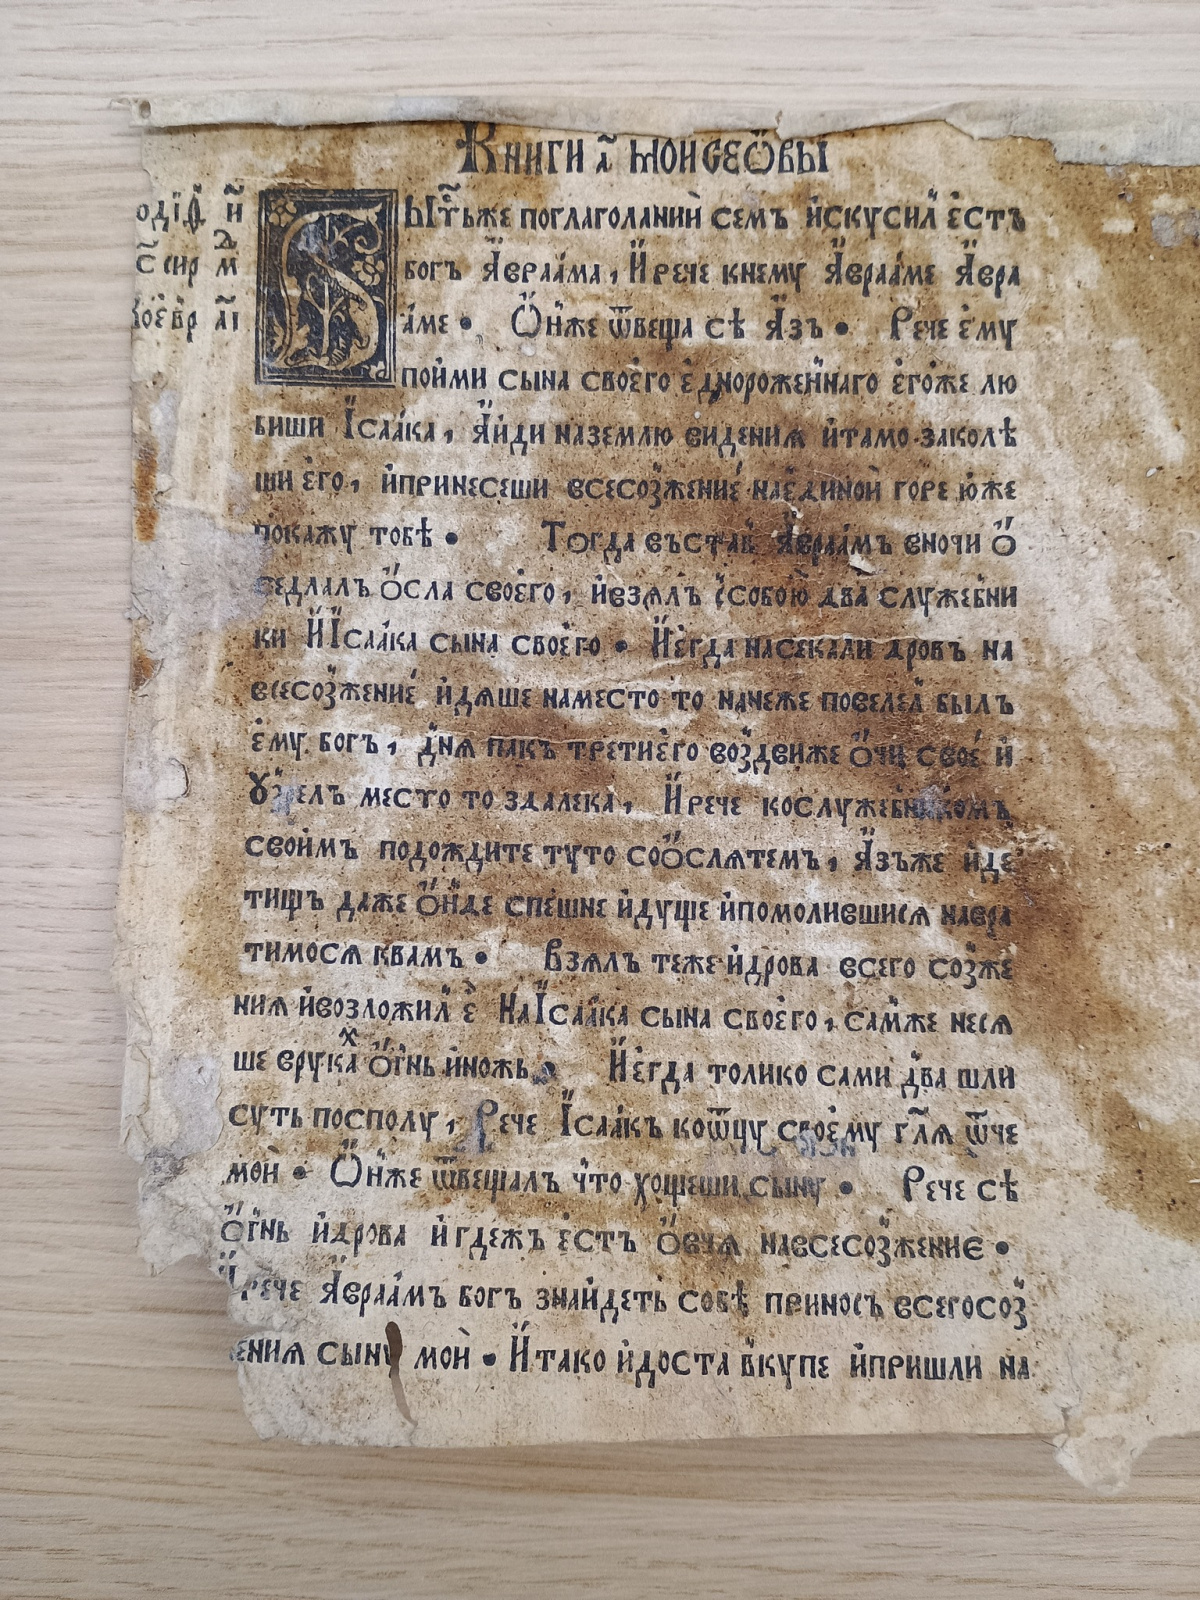 Книги а҃ моисеѡвы
одіѳ и҃
с҃ сир м҃д
коевр аі
Ꙁ
ьіⷭ҇ть же поглаголании̇ семъ и҆скусил е҆стъ
богъ А҆враа́ма, И҆рече кнему А҆враа́ме А҆вра
а́ме • Ѻ҆ни́же ѿвеща сѣ А҆зъ • Рече е҆му
пойми сына свое́го е҆днороже́ннаго е҆го́же лю
биши І҆саа́ка, А҆и́ди наземлю видения и҆тамо заколѣ
ши е҆го, и҆принесеши всесоз̾жение наедино́й горе ю҆же
покажу тобѣ • Тогда въстав̾ А҆враа́мъ вночи Ѻ҆
седлалъ Ѻ҆сла свое́го, и҆взялъ ссобою два служебни
ки И҆І҆саа́ка сына свое́го • И҆е҆гда насекали дровъ на
всесоз̾жение́ и҆дяше наместо то наче́же повелел былъ
е҆му богъ, дн҃я пакъ третие́го воз̾движе Ѻ҆чи свое́ и҆
Ꙋзрелъ место то здалека, И҆рече кослужебникомъ
свои́мъ подождите туто соѺ҆слятемъ, А҆зъже и҆де
тищъ даже Ѻ҆нде спешне и҆дуще и҆помолившися навра
тимося квамъ • Взялъ теже и҆дрова всего соз̾же
ния и҆возложил е҆ НаІ҆саа́ка сына свое́го, сам̾же неся
ше врукаⷯ Ѻ҆гнь и҆ножъ • И҆е҆гда толико сами два шли
суть посполу, Рече І҆саа́къ коѿцу свое́му гл҃я ѿче
мой • Ѻ҆ни́же ѿвещалъ что хощеши сыну • Рече сѣ
Ѻ҆гнь и҆дрова и҆гдежъ е҆стъ Ѻ҆вчя навсесоз̾жение •
И҆рече А҆враа́мъ богъ знайдеть собѣ приносъ всегосоз̾
жения сыну мой • И҆тако и҆доста вкупе и҆пришли на